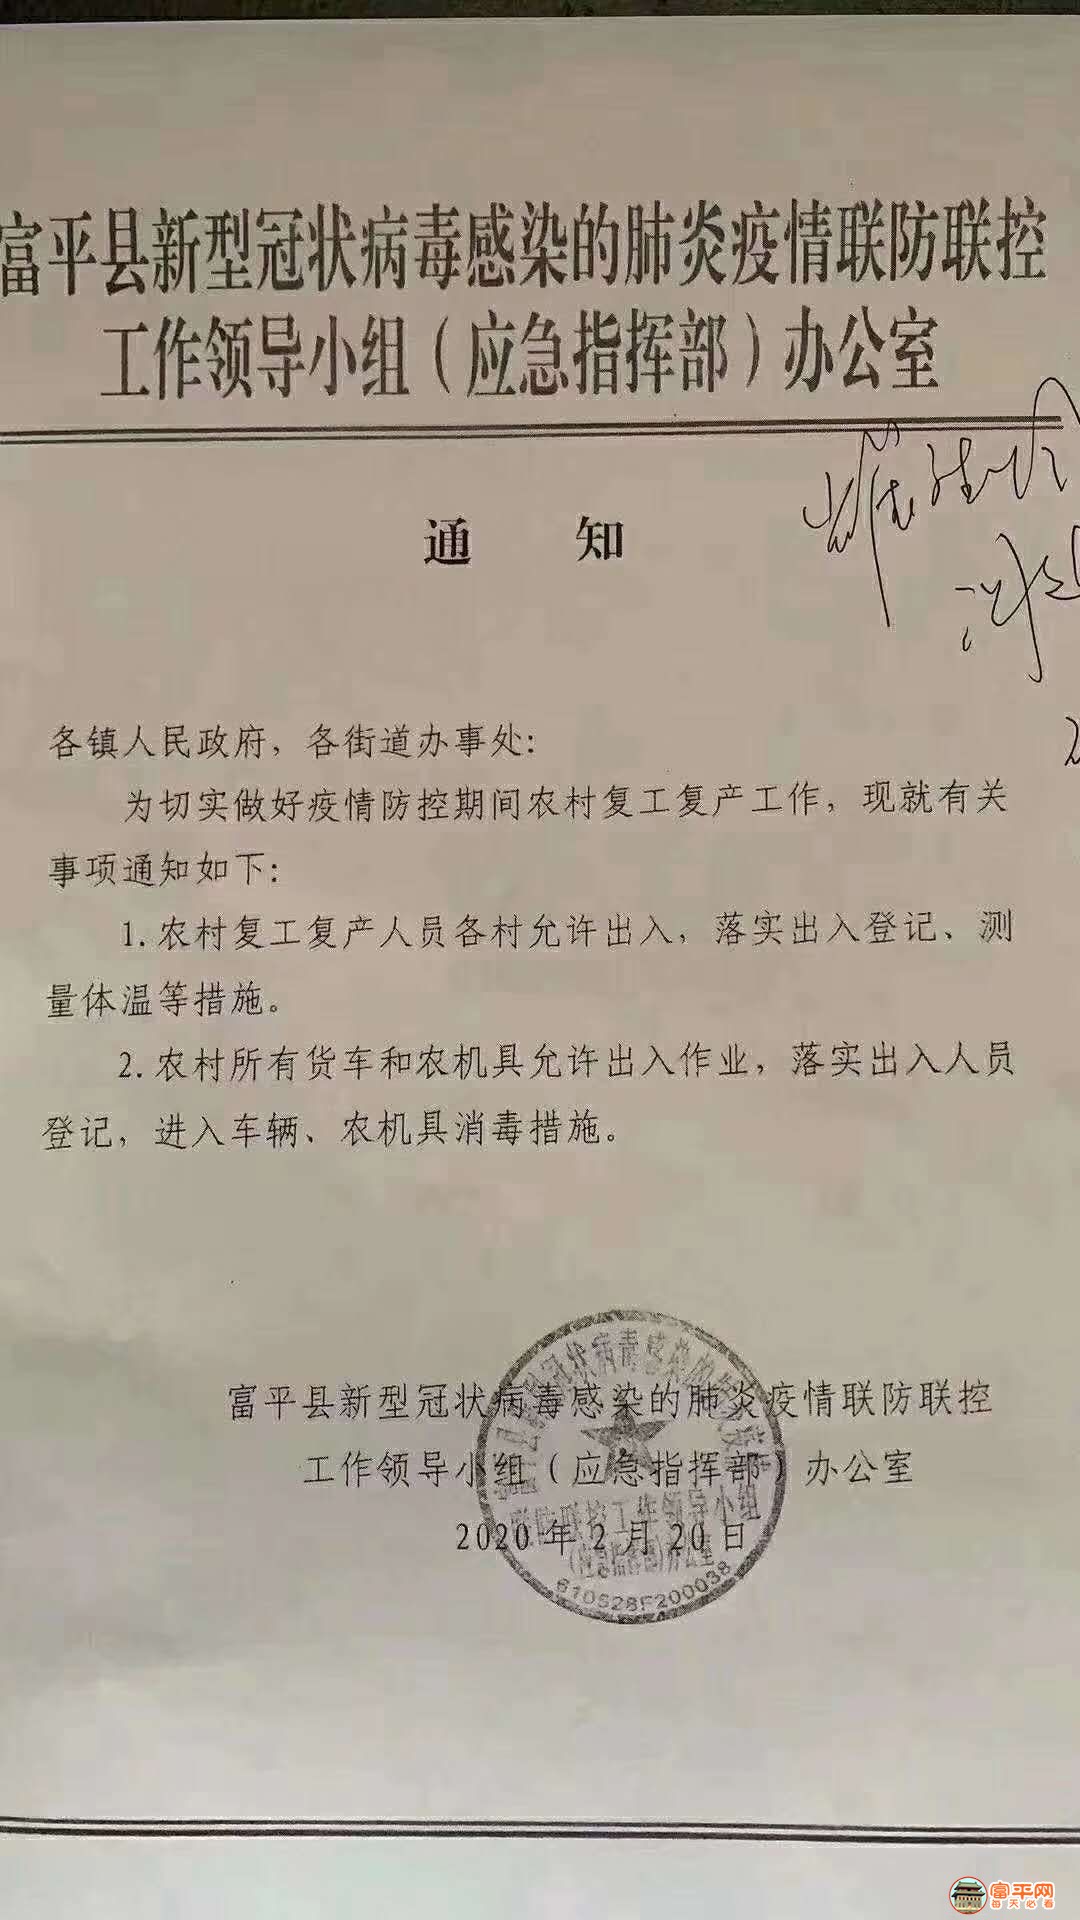 富平县新型冠状病毒感染的肺炎疫情联防联控
工作领导小组（应急指挥部）办公室
通 知
各镇人民政府，各街道办事处：
为切实做好疫情防控期间农村复工复产工作，现就有关
事项通知如下：
1. 农村复工复产人员各村允许出入，落实出入登记、测
量体温等措施。
2. 农村所有货车和农机具允许出入作业，落实出入人员
登记，进入车辆、农机具消毒措施。
富平县新型冠状病毒感染的肺炎疫情联防联控
工作领导小组（应急指挥部）办公室
2020 年 2 月 20 日
联防联控工作领导小组
（应急指挥部）办公室
610528F200038
富平网
每天必看